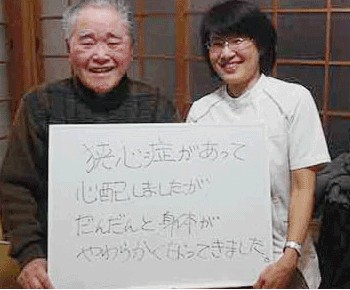 狭心症があって
心配しましたが
だんだんと身体が
やわらかくなってきました。